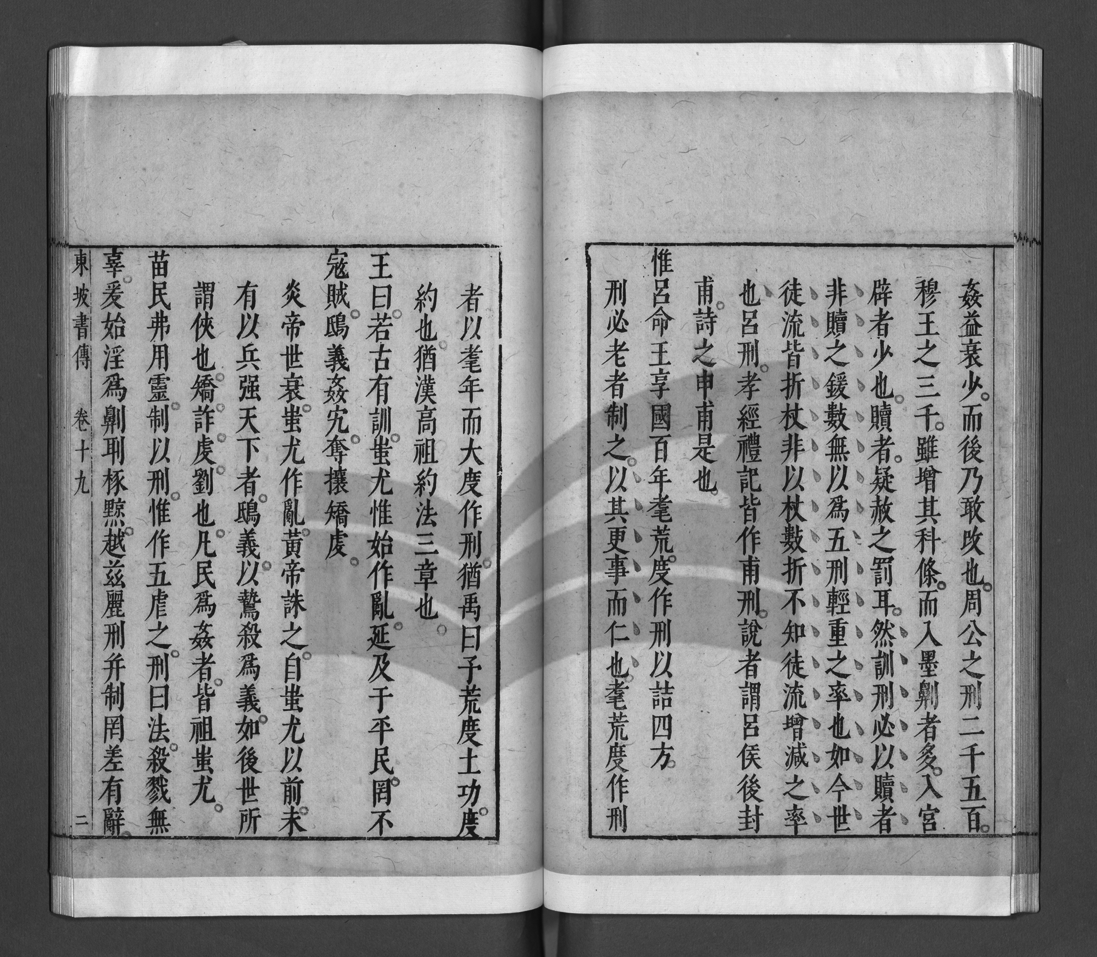 姦益衰少。而後乃敢改也。周公之刑二千五百。
穆王之三千。雖增其科條。而入墨劓者多。入宮
辟者少也。贖者。疑赦之罰耳。然訓刑必以贖者
非贖之鍰數無以爲五刑輕重之率也如今世
徒流皆折杖非以杖數折不知徒流增減之率
也呂刑。孝經禮記皆作甫刑。說者謂呂侯後封
甫。詩之申甫是也。
惟呂命王享國百年耄荒。度作刑以詰四方。
刑必老者制之。以其更事而仁也。耄荒度作刑
者以耄年而大度作刑。猶禹曰予荒度土功。度
約也。猶漢高祖約法三章也。
王曰。若古有訓。蚩尤惟始作亂。延及于平民。罔不
寇賊。鴟義姦宄。奪攘矯虔。
炎帝世衰。蚩尤作亂。黃帝誅之。自蚩尤以前。未
有以兵强天下者。鴟義。以鷙殺爲義。如後世所
謂俠也。矯詐虔劉也。凡民爲姦者。皆祖蚩尤。
苗民弗用靈。制以刑。惟作五虐之。刑曰法。殺戮無
辜。爰始淫爲劓刵椓黥。越茲麗刑幷制罔差有辭。
東坡書傳 卷十九 二